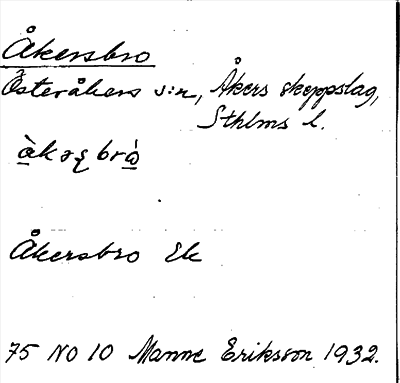 Åkersbro
Österåkers s:n, Åkers skeppslag,
Sthlms l.
Åkersbro Ek
75 NO 10 Manne Eriksson 1932.